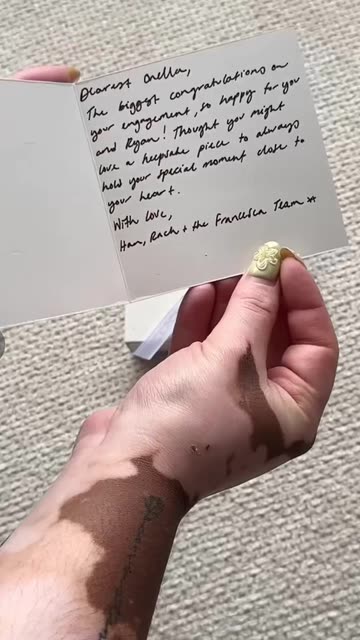 Dearest Onella,
The biggest congratulations on
your engagement, so happy for you
and Ryan! Thought you might
love a keepsake piece to always
hold your special moment close to
your heart.
With love,
Han, Rach + the Francesca Team *